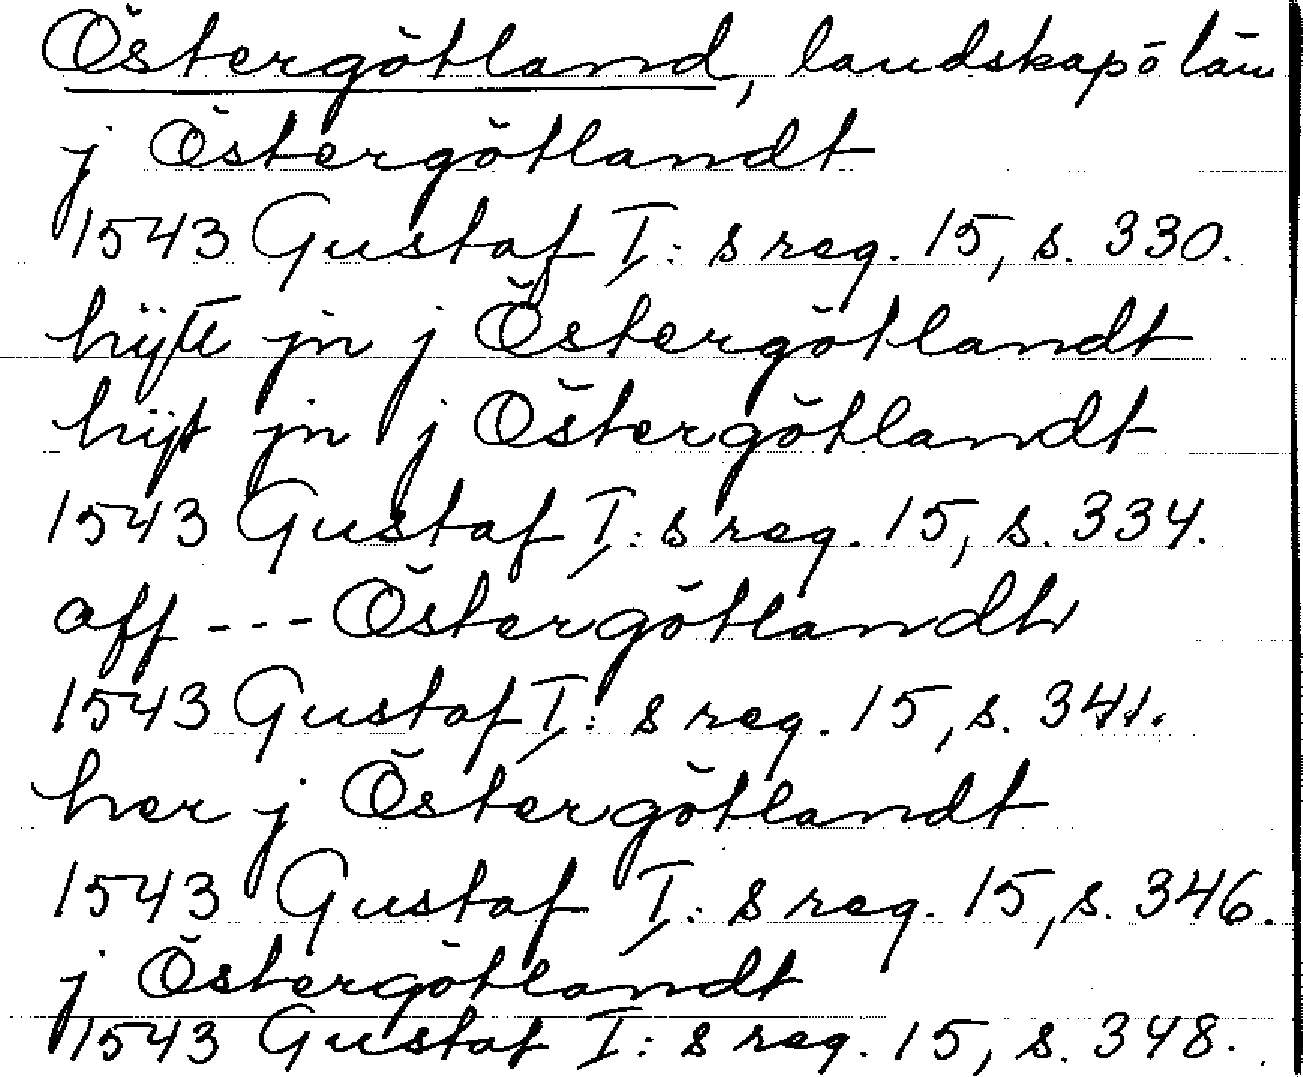 Östergötland, landskap o län
j Östergötlandt
1543 Gustaf I:s reg. 15, s. 330.
hijtt jn j Östergötlandt
hijt jn j Östergötlandt
1543 Gustaf I:s reg. 15, s. 334.
aff --- Östergötlandh
1543 Gustaf I:s reg. 15, s. 341.
her j Östergötlandt
1543 Gustaf I:s reg. 15, s. 346.
j Östergötlandt
1543 Gustaf I:s reg. 15, s. 348.